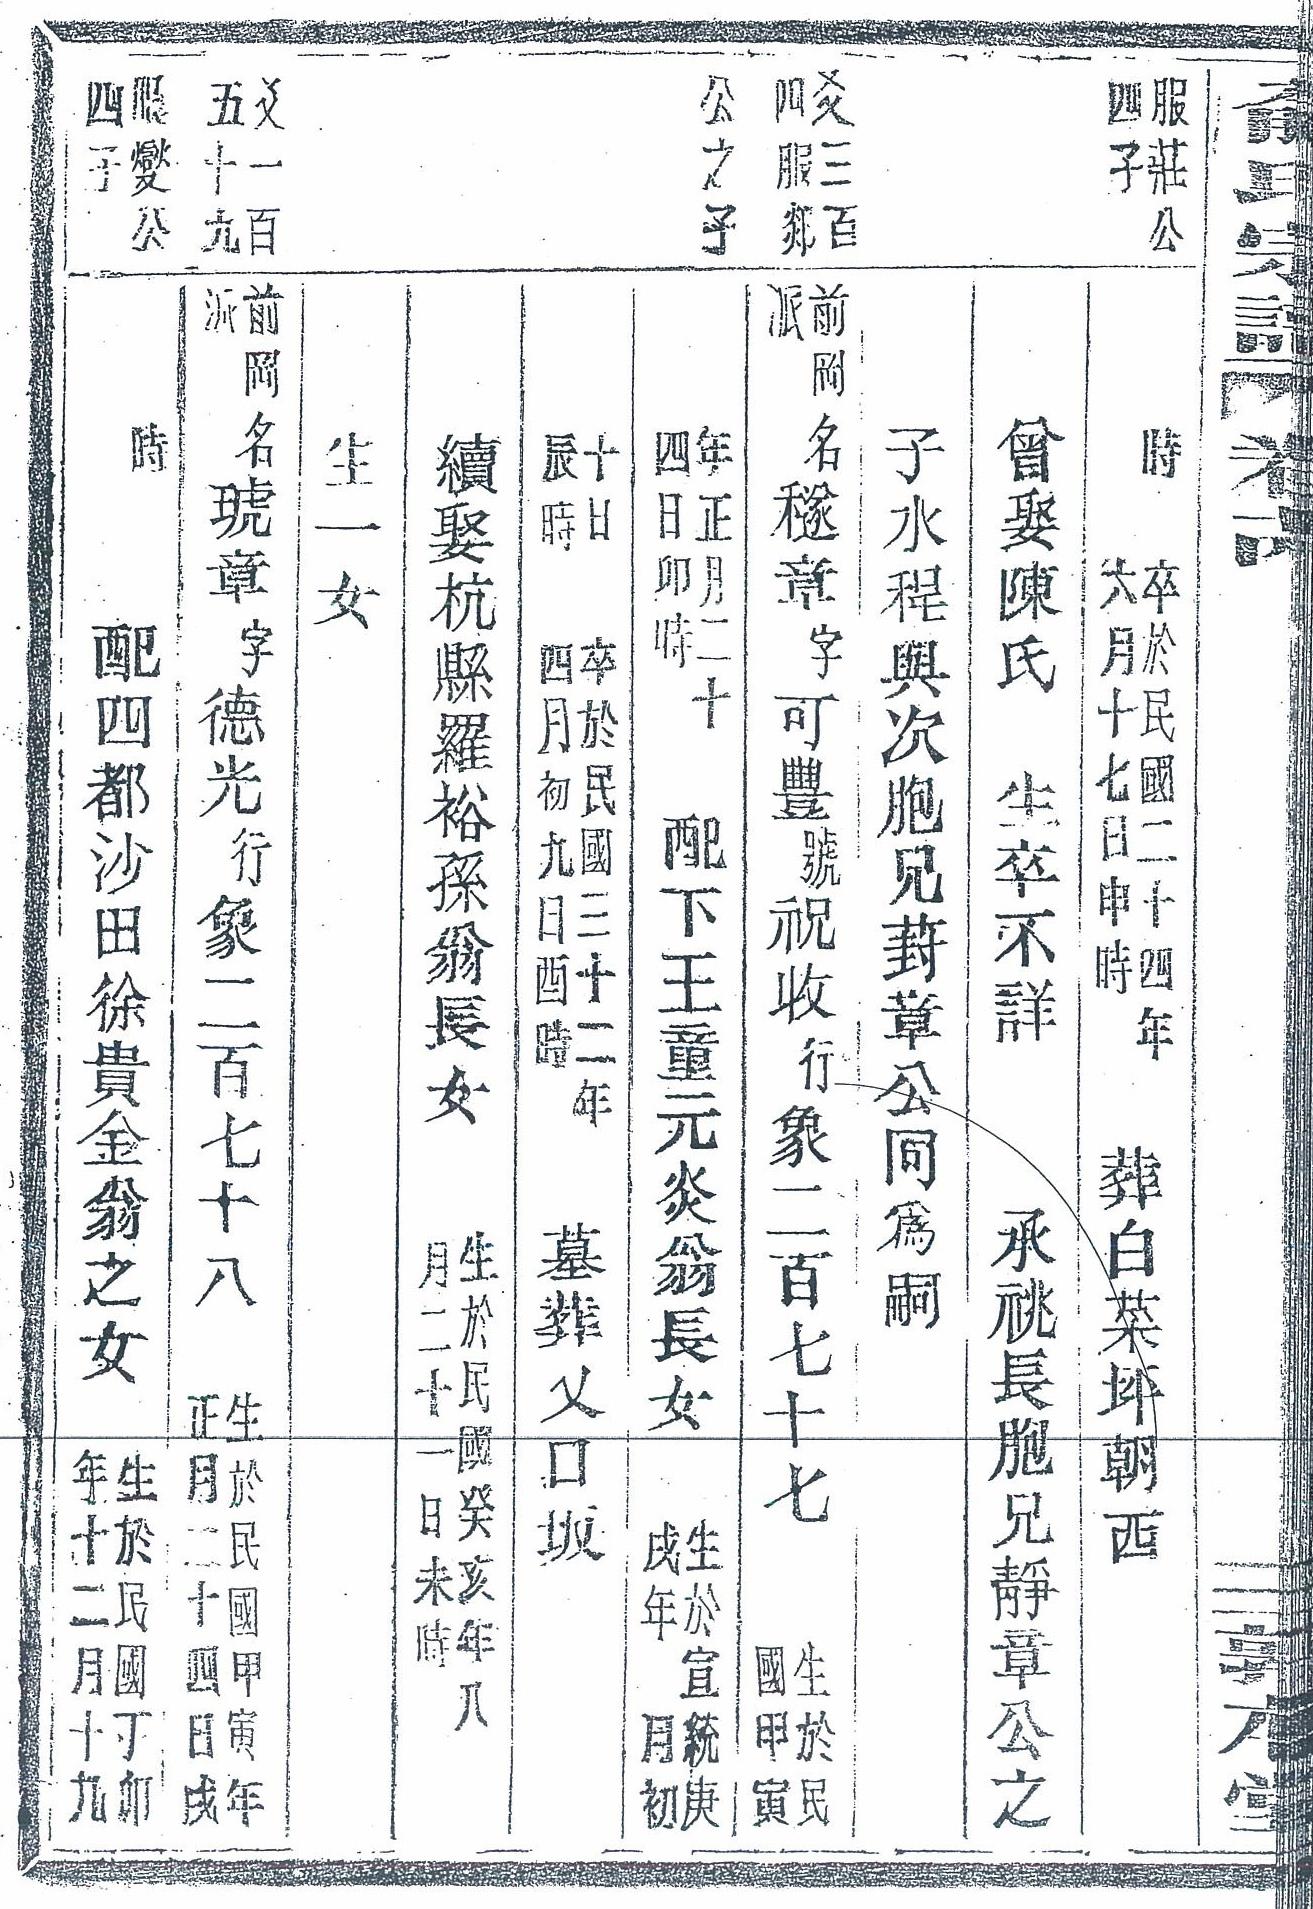 服莊公
四子
時
卒於民國二十四年
六月十七日申時
葬白菜坪朝西
曾娶陳氏 生卒不詳 承祧長胞兄靜章公之
子水程與次胞兄葑章公同為嗣
爻三百
四服郯
前岡
派
名穟章字可豐號祝收行象二百七十七
生於民
國甲寅
公之子
年正月二十
四日卯時
配下王童元炎翁長女
生於宣統庚
戌年 月初
十日
辰時
卒於民國三十二年
四月初九日酉時
墓葬乂口坂
續娶杭縣羅裕孫翁長女
生於民國癸亥年八
月二十一日未時
生一女
爻一百
五十九
前岡
派
名琥章字德光行象二百七十八
生於民國甲寅年
正月二十四日戌
服燮公
四子
時
配四都沙田徐貴金翁之女
生於民國丁卯
年十二月十九